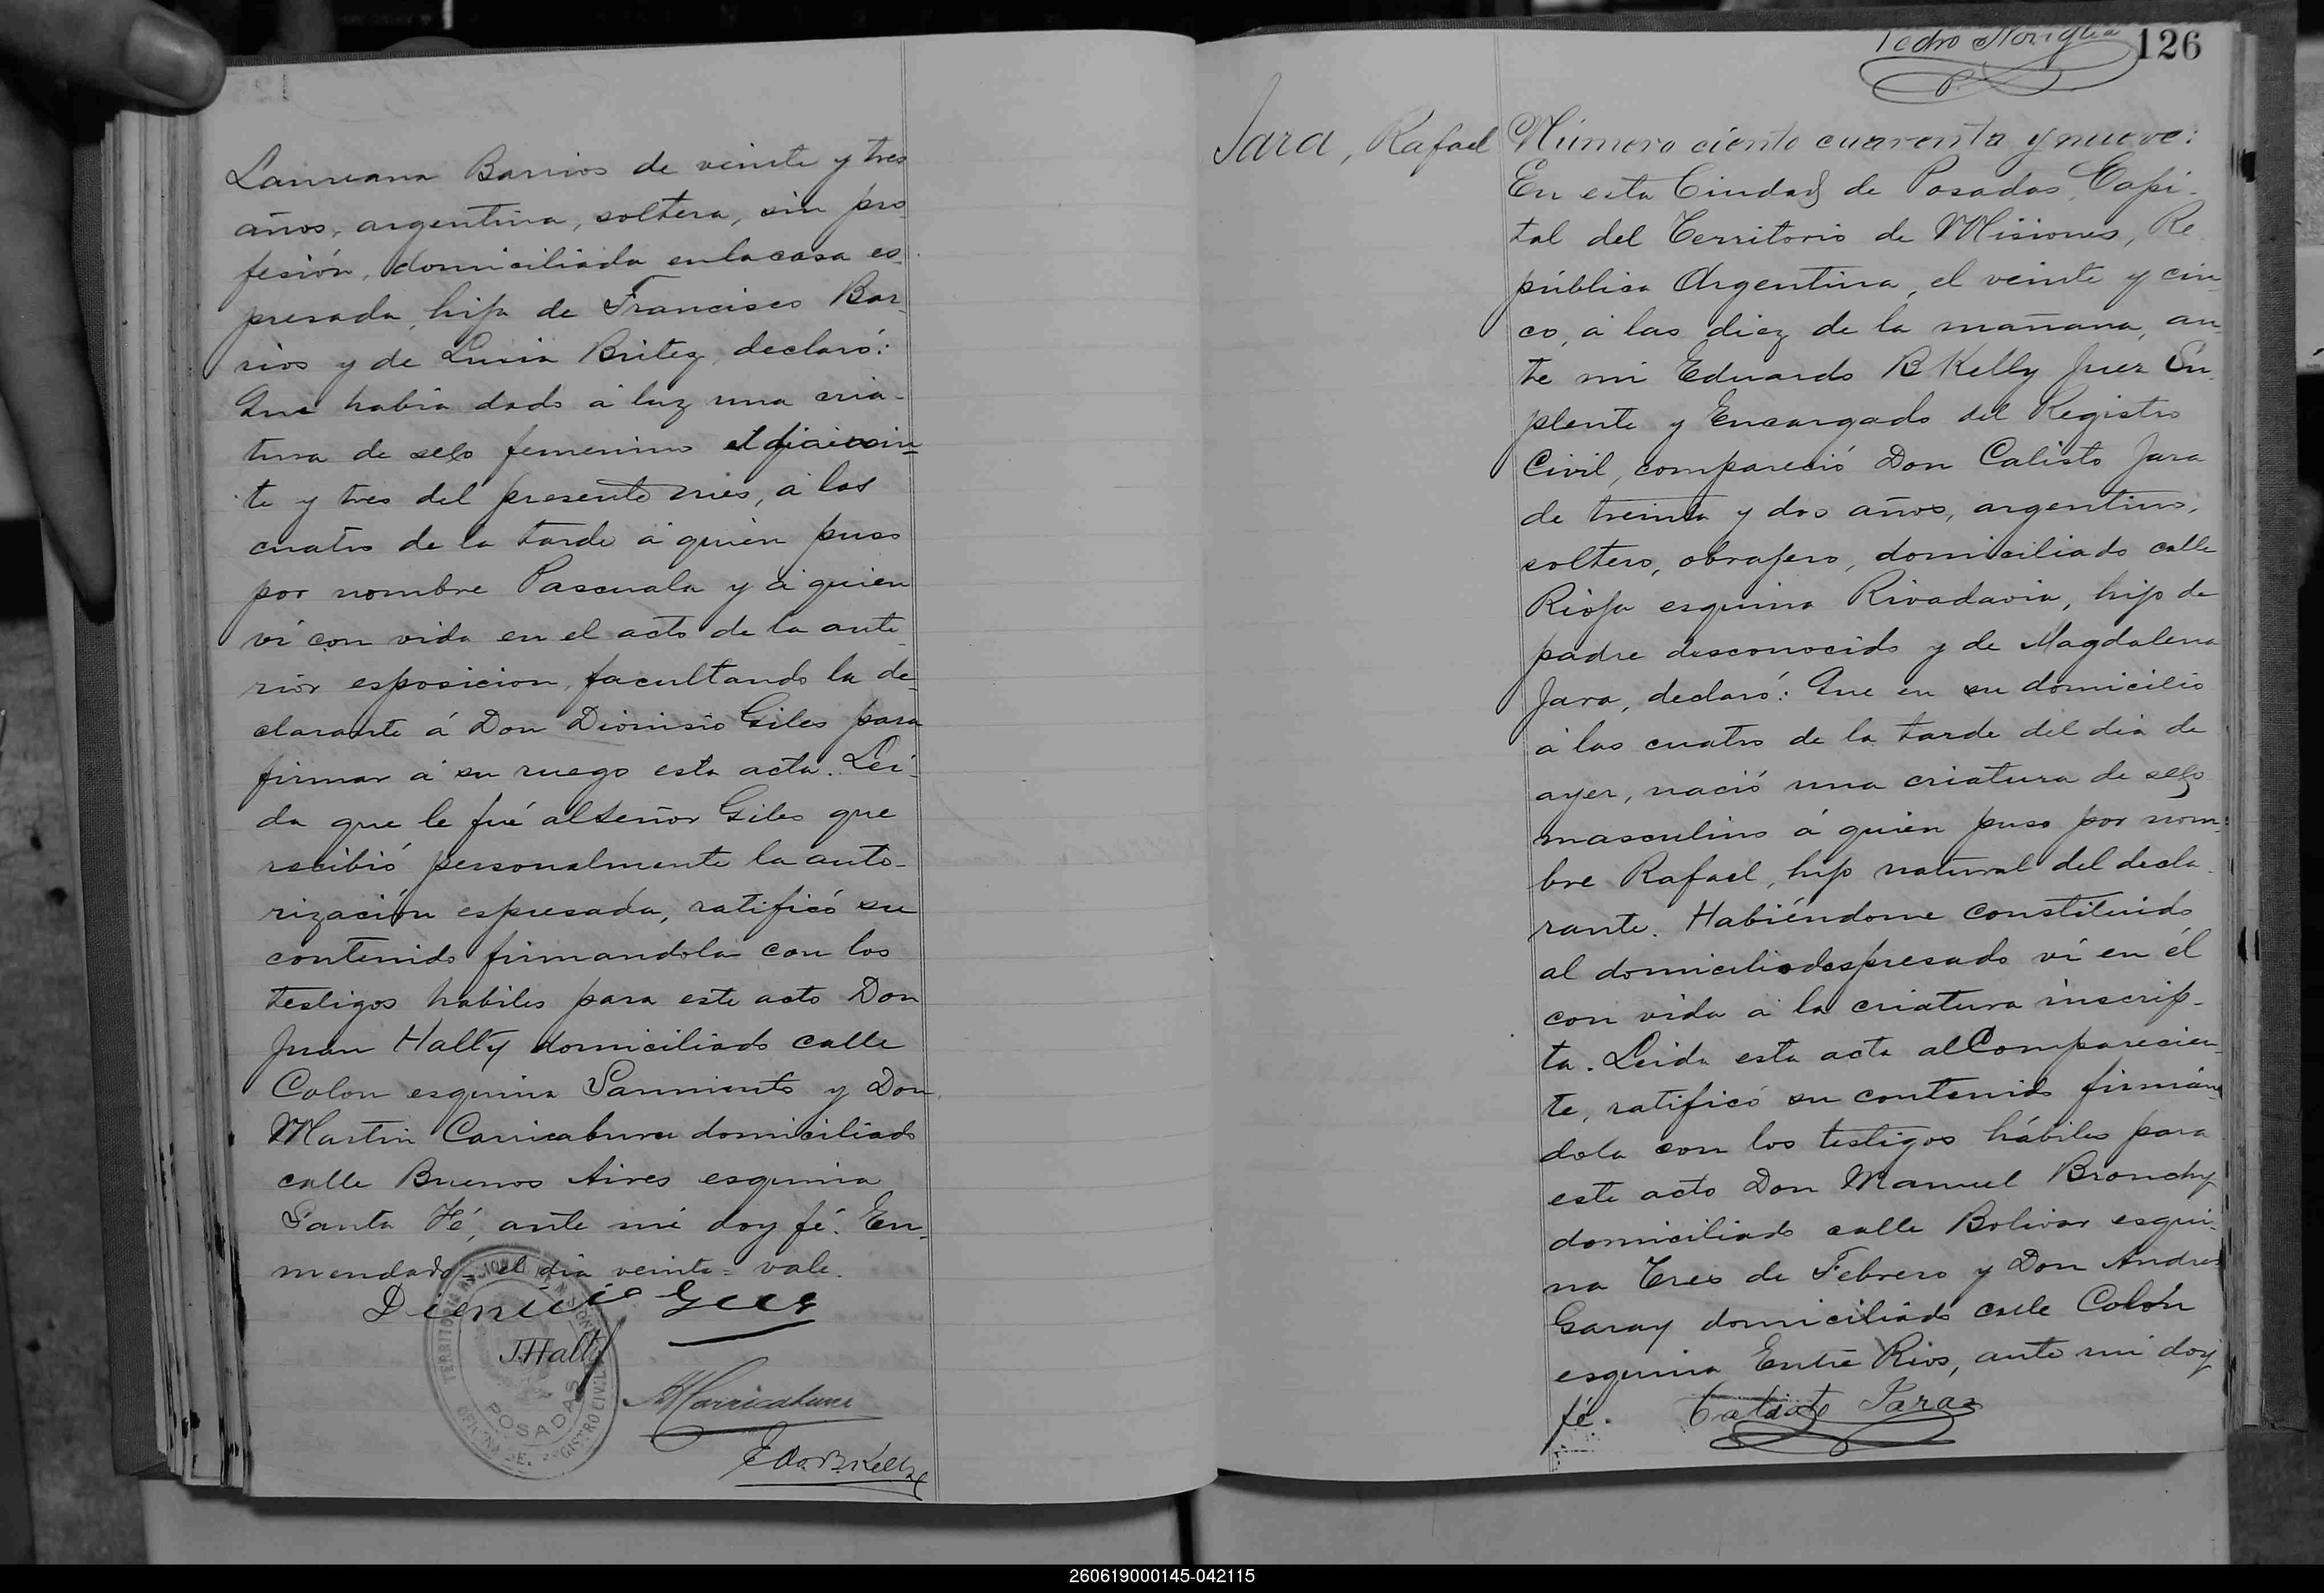 Laureana Barrios de veinte y tres
años, argentina, soltera, sin pro
fesión, domiciliada en la casa es
presada, hija de Francisco Bar
rios y de Lucia Britez, declaró:
Que habia dado á luz una cria-
tura de sexo femenino el dia vein=
te y tres del presente mes, á las
cuatro de la tarde á quien puso
por nombre Pascuala y á quien
ví con vida en el acto de la ante
rior esposicion, facultando la de-
clarante á Don Dionisio Giles para
firmar á su ruego esta acta. Lei-
da que le fué al Señor Giles que
recibió personalmente la auto-
rización espresada, ratificó su
contenido firmandola con los
testigos habiles para este acto Don
Juan Halty domiciliado calle
Colon esquina Sarmiento y Don
Martin Carricaburu domiciliado
calle Buenos Aires esquina
Santa Fé, ante mi doy fé. En-
mendado = el dia veinte = vale.
J. Halty
TERRITORIO NACIONAL DE MISIONES
POSADAS
OFICINA DEL REGISTRO CIVIL
EdoBKelly
Pedro
126
Jara, Rafael
Número ciento cuarenta y nueve:
En esta Ciudad de Posadas, Capi-
tal del Territorio de Misiones, Re
pública Argentina, el veinte y cin
co, á las diez de la mañana, an
te mi Eduardo B Kelly Juez Su
plente y Encargado del Registro
Civil, compareció Don Calisto Jara
de treinta y dos años, argentino,
soltero, obrajero, domiciliado calle
Rioja esquina Rivadavia, hijo de
padre desconocido y de Magdalena
Jara, declaró: Que en su domicilio
á las cuatro de la tarde del dia de
ayer, nació una criatura de sexo
masculino á quien puso por nom-
bre Rafael, hijo natural del decla
rante. Habiéndome constituido
al domicilio espresado ví en él
con vida á la criatura inscrip-
ta. Leida esta acta al Comparecien-
te, ratificó su contenido firmán
dola con los testigos hábiles para
este acto Don Manuel
domiciliado calle Bolivar esqui-
na Tres de Febrero y Don Andres
Garay domiciliado calle Colón
esquina Entre Rios, ante mi doy
fé.
Calisto Jara
260619000145-042115